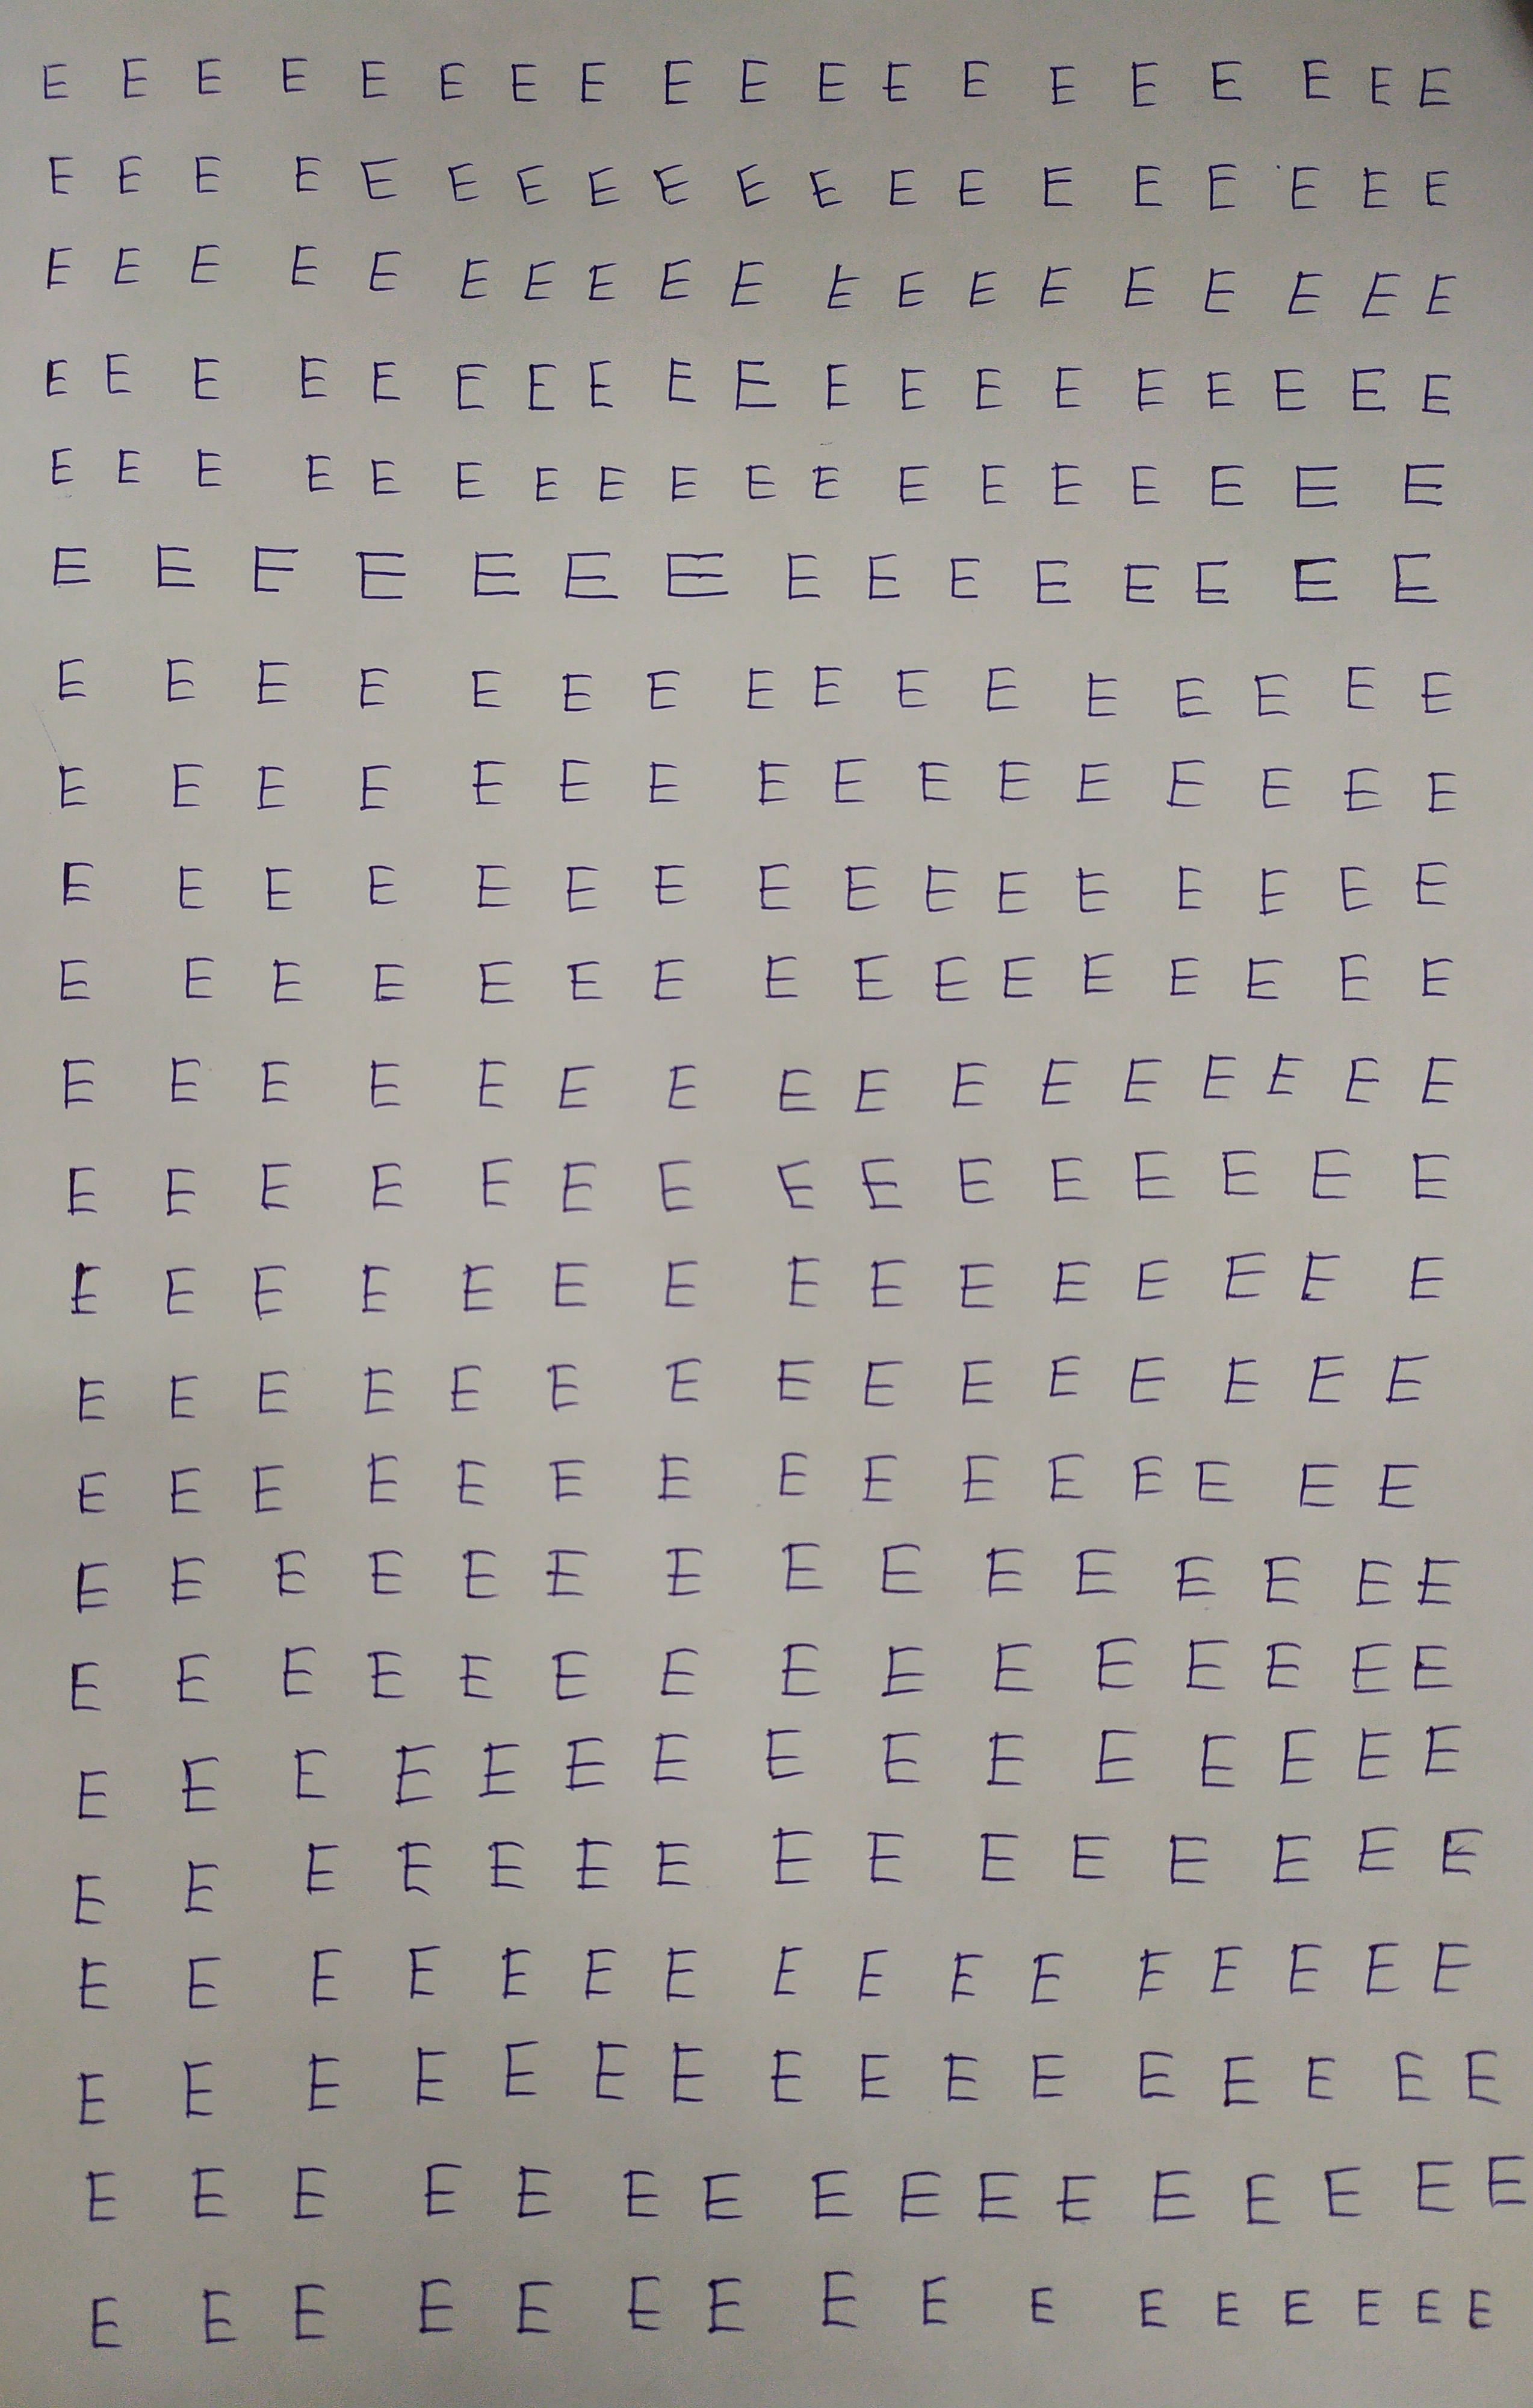 E E E E E E E E E E E E E E E E E E E
E E E E E E E E E E E E E E E E E E E
E E E E E E E E E E E E E E E E E E E
E E E E E E E E E E E E E E E E E E E
E E E E E E E E E E E E E E E E E E
E E E E E E E E E E E E E E E
E E E E E E E E E E E E E E E E
E E E E E E E E E E E E E E E E
E E E E E E E E E E E E E E E E
E E E E E E E E E E E E E E E E
E E E E E E E E E E E E E E E E
E E E E E E E E E E E E E E E
E E E E E E E E E E E E E E E
E E E E E E E E E E E E E E E
E E E E E E E E E E E E E E E
E E E E E E E E E E E E E E E
E E E E E E E E E E E E E E E
E E E E E E E E E E E E E E E
E E E E E E E E E E E E E E E
E E E E E E E E E E E E E E E E
E E E E E E E E E E E E E E E E
E E E E E E E E E E E E E E E E
E E E E E E E E E E E E E E E E